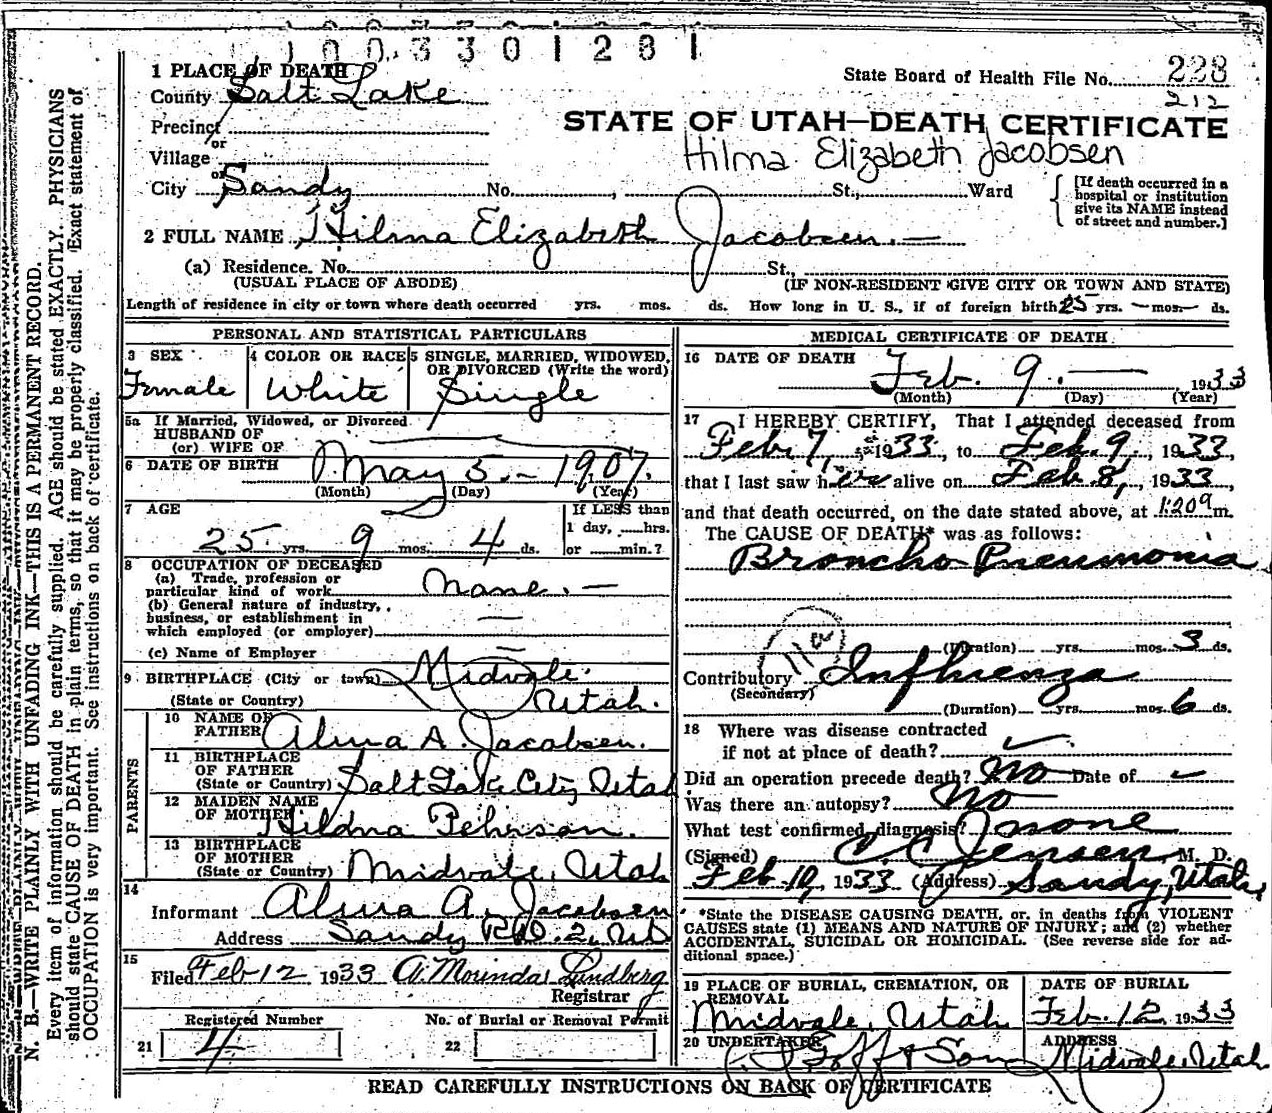 1003301281
1 PLACE OF DEATH
State Board of Health File No. 228
County Salt Lake
212
Precinct
or
STATE OF UTAH—DEATH CERTIFICATE
Village
Hilma Elizabeth Jacobsen
or
City Sandy No. , St., Ward
[If death occurred in a
hospital or institution
give its NAME instead
of street and number.]
2 FULL NAME Hilma Elizabeth Jacobsen.—
(a) Residence. No. St.,
(USUAL PLACE OF ABODE) (IF NON-RESIDENT GIVE CITY OR TOWN AND STATE)
Length of residence in city or town where death occurred yrs. mos. ds. How long in U. S., if of foreign birth 25 yrs. — mos. — ds.
PERSONAL AND STATISTICAL PARTICULARS
3 SEX
Female
4 COLOR OR RACE
White
5 SINGLE, MARRIED, WIDOWED,
OR DIVORCED (Write the word)
Single
5a If Married, Widowed, or Divorced
HUSBAND OF
(or) WIFE OF
6 DATE OF BIRTH May 5.- 1907.
(Month) (Day) (Year)
7 AGE
25 yrs. 9 mos. 4 ds.
If LESS than
1 day, hrs.
or min.?
8 OCCUPATION OF DECEASED
(a) Trade, profession or
particular kind of work None.—
(b) General nature of industry,
business, or establishment in
which employed (or employer) —
(c) Name of Employer —
9 BIRTHPLACE (City or town) Midvale.
(State or Country) Utah.
PARENTS
10 NAME OF
FATHER Alma A. Jacobsen.
11 BIRTHPLACE
OF FATHER
(State or Country) Salt Lake City Utah
12 MAIDEN NAME
OF MOTHER Peherson.
13 BIRTHPLACE
OF MOTHER
(State or Country) Midvale, Utah
14
Informant Alma A. Jacobsen
Address Sandy RFD. 2, Ut
15
Filed Feb 12 1933 A. Morinda Lundberg
Registrar
Registered Number No. of Burial or Removal Permit
21 4 22
MEDICAL CERTIFICATE OF DEATH
16 DATE OF DEATH
Feb. 9.— 1933
(Month) (Day) (Year)
17 I HEREBY CERTIFY, That I attended deceased from
Feb. 7, 1933, to Feb. 9, 1933,
that I last saw her alive on Feb. 8, 1933,
and that death occurred, on the date stated above, at 1:20 a m.
The CAUSE OF DEATH* was as follows:
Broncho Pneumonia
(Duration) yrs. mos. 3 ds.
11a
Contributory Influenza
(Secondary)
(Duration) yrs. mos. 6 ds.
18 Where was disease contracted
if not at place of death?
Did an operation precede death? No Date of
Was there an autopsy? No
What test confirmed diagnosis? none
(Signed) C. C. Jensen, M. D.
Feb 10, 1933 (Address) Sandy, Utah.
*State the DISEASE CAUSING DEATH, or, in deaths from VIOLENT
CAUSES state (1) MEANS AND NATURE OF INJURY; and (2) whether
ACCIDENTAL, SUICIDAL OR HOMICIDAL. (See reverse side for ad-
ditional space.)
19 PLACE OF BURIAL, CREMATION, OR
REMOVAL
Midvale, Utah
DATE OF BURIAL
Feb. 12 1933
20 UNDERTAKER
Goff & Son
ADDRESS
Midvale, Utah
READ CAREFULLY INSTRUCTIONS ON BACK OF CERTIFICATE
N. B.—WRITE PLAINLY WITH UNFADING INK—THIS IS A PERMANENT RECORD.
Every item of information should be carefully supplied. AGE should be stated EXACTLY. PHYSICIANS
should state CAUSE OF DEATH in plain terms, so that it may be properly classified. Exact statement of
OCCUPATION is very important. See instructions on back of certificate.